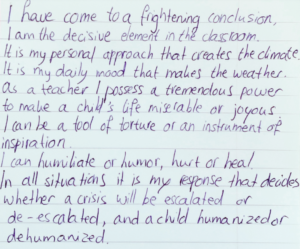 I have come to a frightening conclusion,
I am the decisive element in the classroom.
It is my personal approach that creates the climate.
It is my daily mood that makes the weather.
As a teacher I possess a tremendous power
to make a child's life miserable or joyous.
I can be a tool of torture or an instrument of
inspiration.
I can humiliate or humor, hurt or heal
In all situations it is my response that decides
whether a crisis will be escalated or
de-escalated, and a child humanized or
dehumanized.